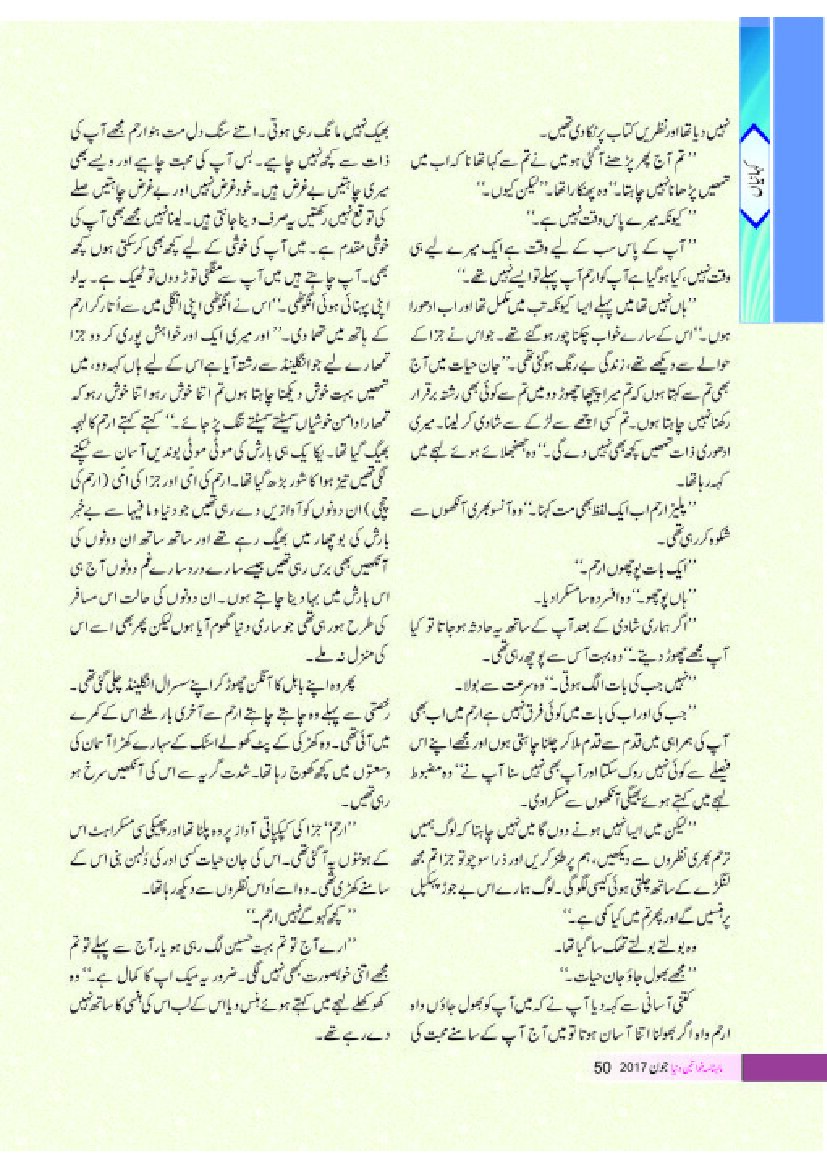 کہانیاں
نہیں دیا تھا اور نظریں کتاب پر ٹکا دی تھیں۔
’’تم آج پھر پڑھنے آ گئی ہو میں نے تم سے کہا تھا نا کہ اب میں
تمھیں پڑھانا نہیں چاہتا۔‘‘ وہ پھنکارا تھا۔ ’’لیکن کیوں۔‘‘
’’کیونکہ میرے پاس وقت نہیں ہے۔‘‘
’’آپ کے پاس سب کے لیے وقت ہے ایک میرے لیے ہی
وقت نہیں، کیا ہو گیا ہے آپ کو ارحم آپ پہلے تو ایسے نہیں تھے۔‘‘
’’ہاں نہیں تھا میں پہلے ایسا کیونکہ تب میں مکمل تھا اور اب ادھورا
ہوں۔‘‘ اس کے سارے خواب چکنا چور ہو گئے تھے۔ جو اس نے جزا کے
حوالے سے دیکھے تھے، زندگی بے رنگ ہو گئی تھی۔ ’’جان حیات میں آج
بھی تم سے کہتا ہوں کہ تم میرا پیچھا چھوڑ دو میں تم سے کوئی بھی رشتہ برقرار
رکھنا نہیں چاہتا ہوں۔ تم کسی اچھے سے لڑکے سے شادی کر لینا۔ میری
ادھوری ذات تمھیں کچھ بھی نہیں دے گی۔‘‘ وہ جھنجھلائے ہوئے لہجے میں
کہہ رہا تھا۔
’’پلیز ارحم اب ایک لفظ بھی مت کہنا۔‘‘ وہ آنسو بھری آنکھوں سے
شکوہ کر رہی تھی۔
’’ایک بات پوچھوں ارحم۔‘‘
’’ہاں پوچھو۔‘‘ وہ افسردہ سا مسکرا دیا۔
’’اگر ہماری شادی کے بعد آپ کے ساتھ یہ حادثہ ہو جاتا تو کیا
آپ مجھے چھوڑ دیتے۔‘‘ وہ بہت آس سے پوچھ رہی تھی۔
’’نہیں جب کی بات الگ ہوتی۔‘‘ وہ سرعت سے بولا۔
’’جب کی اور اب کی بات میں کوئی فرق نہیں ہے ارحم میں اب بھی
آپ کی ہمراہی میں قدم سے قدم ملا کر چلنا چاہتی ہوں اور مجھے اپنے اس
فیصلے سے کوئی نہیں روک سکتا اور آپ بھی نہیں سنا آپ نے‘‘ وہ مضبوط
لہجے میں کہتے ہوئے بھیگی آنکھوں سے مسکرا دی۔
’’لیکن میں ایسا نہیں ہونے دوں گا میں نہیں چاہتا کہ لوگ ہمیں
ترحم بھری نظروں سے دیکھیں، ہم پر طنز کریں اور ذرا سوچو تو جزا تم مجھ
لنگڑے کے ساتھ چلتی ہوئی کیسی لگو گی۔ لوگ ہمارے اس بے جوڑ
پر ہنسیں گے اور پھر تم میں کیا کمی ہے۔‘‘
وہ بولتے بولتے تھک سا گیا تھا۔
’’مجھے بھول جاؤ جان حیات۔‘‘
کتنی آسانی سے کہہ دیا آپ نے کہ میں آپ کو بھول جاؤں واہ
ارحم واہ اگر بھولنا اتنا آسان ہوتا تو میں آج آپ کے سامنے محبت کی
بھیک نہیں مانگ رہی ہوتی۔ اتنے سنگ دل مت بنو ارحم مجھے آپ کی
ذات سے کچھ نہیں چاہیے۔ بس آپ کی محبت چاہیے اور ویسے بھی
میری چاہتیں بے غرض ہیں۔ خود غرض نہیں اور بے غرض چاہتیں صلے
کی توقع نہیں رکھتیں یہ صرف دینا جانتی ہیں۔ لینا نہیں مجھے بھی آپ کی
خوشی مقدم ہے۔ میں آپ کی خوشی کے لیے کچھ بھی کر سکتی ہوں کچھ
بھی۔ آپ چاہتے ہیں میں آپ سے منگنی توڑ دوں تو ٹھیک ہے۔ یہ لو
اپنی پہنائی ہوئی انگوٹھی۔‘‘ اس نے انگوٹھی اپنی انگلی میں سے اُتار کر ارحم
کے ہاتھ میں تھما دی۔ ’’اور میری ایک اور خواہش پوری کر دو جزا
تمھارے لیے جو انگلینڈ سے رشتہ آیا ہے اس کے لیے ہاں کہہ دو، میں
تمھیں بہت خوش دیکھنا چاہتا ہوں تم اتنا خوش رہو اتنا خوش رہو کہ
تمھارا دامن خوشیاں سمیٹتے سمیٹتے تنگ پڑ جائے۔‘‘ کہتے کہتے ارحم کا لہجہ
بھیگ گیا تھا۔ یکا یک ہی بارش کی موٹی موٹی بوندیں آسمان سے ٹپکنے
لگی تھیں تیز ہوا کا شور بڑھ گیا تھا۔ ارحم کی امّی اور جزا کی امّی (ارحم کی
چچی) ان دونوں کو آوازیں دے رہی تھیں جو دنیا و ما فیہا سے بے خبر
بارش کی بوچھار میں بھیگ رہے تھے اور ساتھ ساتھ ان دونوں کی
آنکھیں بھی برس رہی تھیں جیسے سارے درد سارے غم دونوں آج ہی
اس بارش میں بہا دینا چاہتے ہوں۔ ان دونوں کی حالت اس مسافر
کی طرح ہو رہی تھی جو ساری دنیا گھوم آیا ہوں لیکن پھر بھی اسے اس
کی منزل نہ ملے۔
پھر وہ اپنے بابل کا آنگن چھوڑ کر اپنے سسرال انگلینڈ چلی گئی تھی۔
رخصتی سے پہلے وہ جاتے جاتے ارحم سے آخری بار ملنے اس کے کمرے
میں آئی تھی۔ وہ کھڑکی کے پٹ کھولے اسٹک کے سہارے کھڑا آسمان کی
وسعتوں میں کچھ کھوج رہا تھا۔ شدت گریہ سے اس کی آنکھیں سرخ ہو
رہی تھیں۔
’’ارحم‘‘ جزا کی کپکپاتی آواز پر وہ پلٹا تھا اور پھیکی سی مسکراہٹ اس
کے ہونٹوں پہ آ گئی تھی۔ اس کی جان حیات کسی اور کی دُلہن بنی اس کے
سامنے کھڑی تھی۔ وہ اسے اُداس نظروں سے دیکھ رہا تھا۔
’’کچھ کہو گے نہیں ارحم۔‘‘
’’ارے آج تو تم بہت حسین لگ رہی ہو یار آج سے پہلے تو تم
مجھے اتنی خوبصورت کبھی نہیں لگی۔ ضرور یہ میک اپ کا کمال ہے۔‘‘ وہ
کھوکھلے لہجے میں کہتے ہوئے ہنس دیا اس کے لب اس کی ہنسی کا ساتھ نہیں
دے رہے تھے۔
ماہنامہ خواتین دنیا جون 2017 50